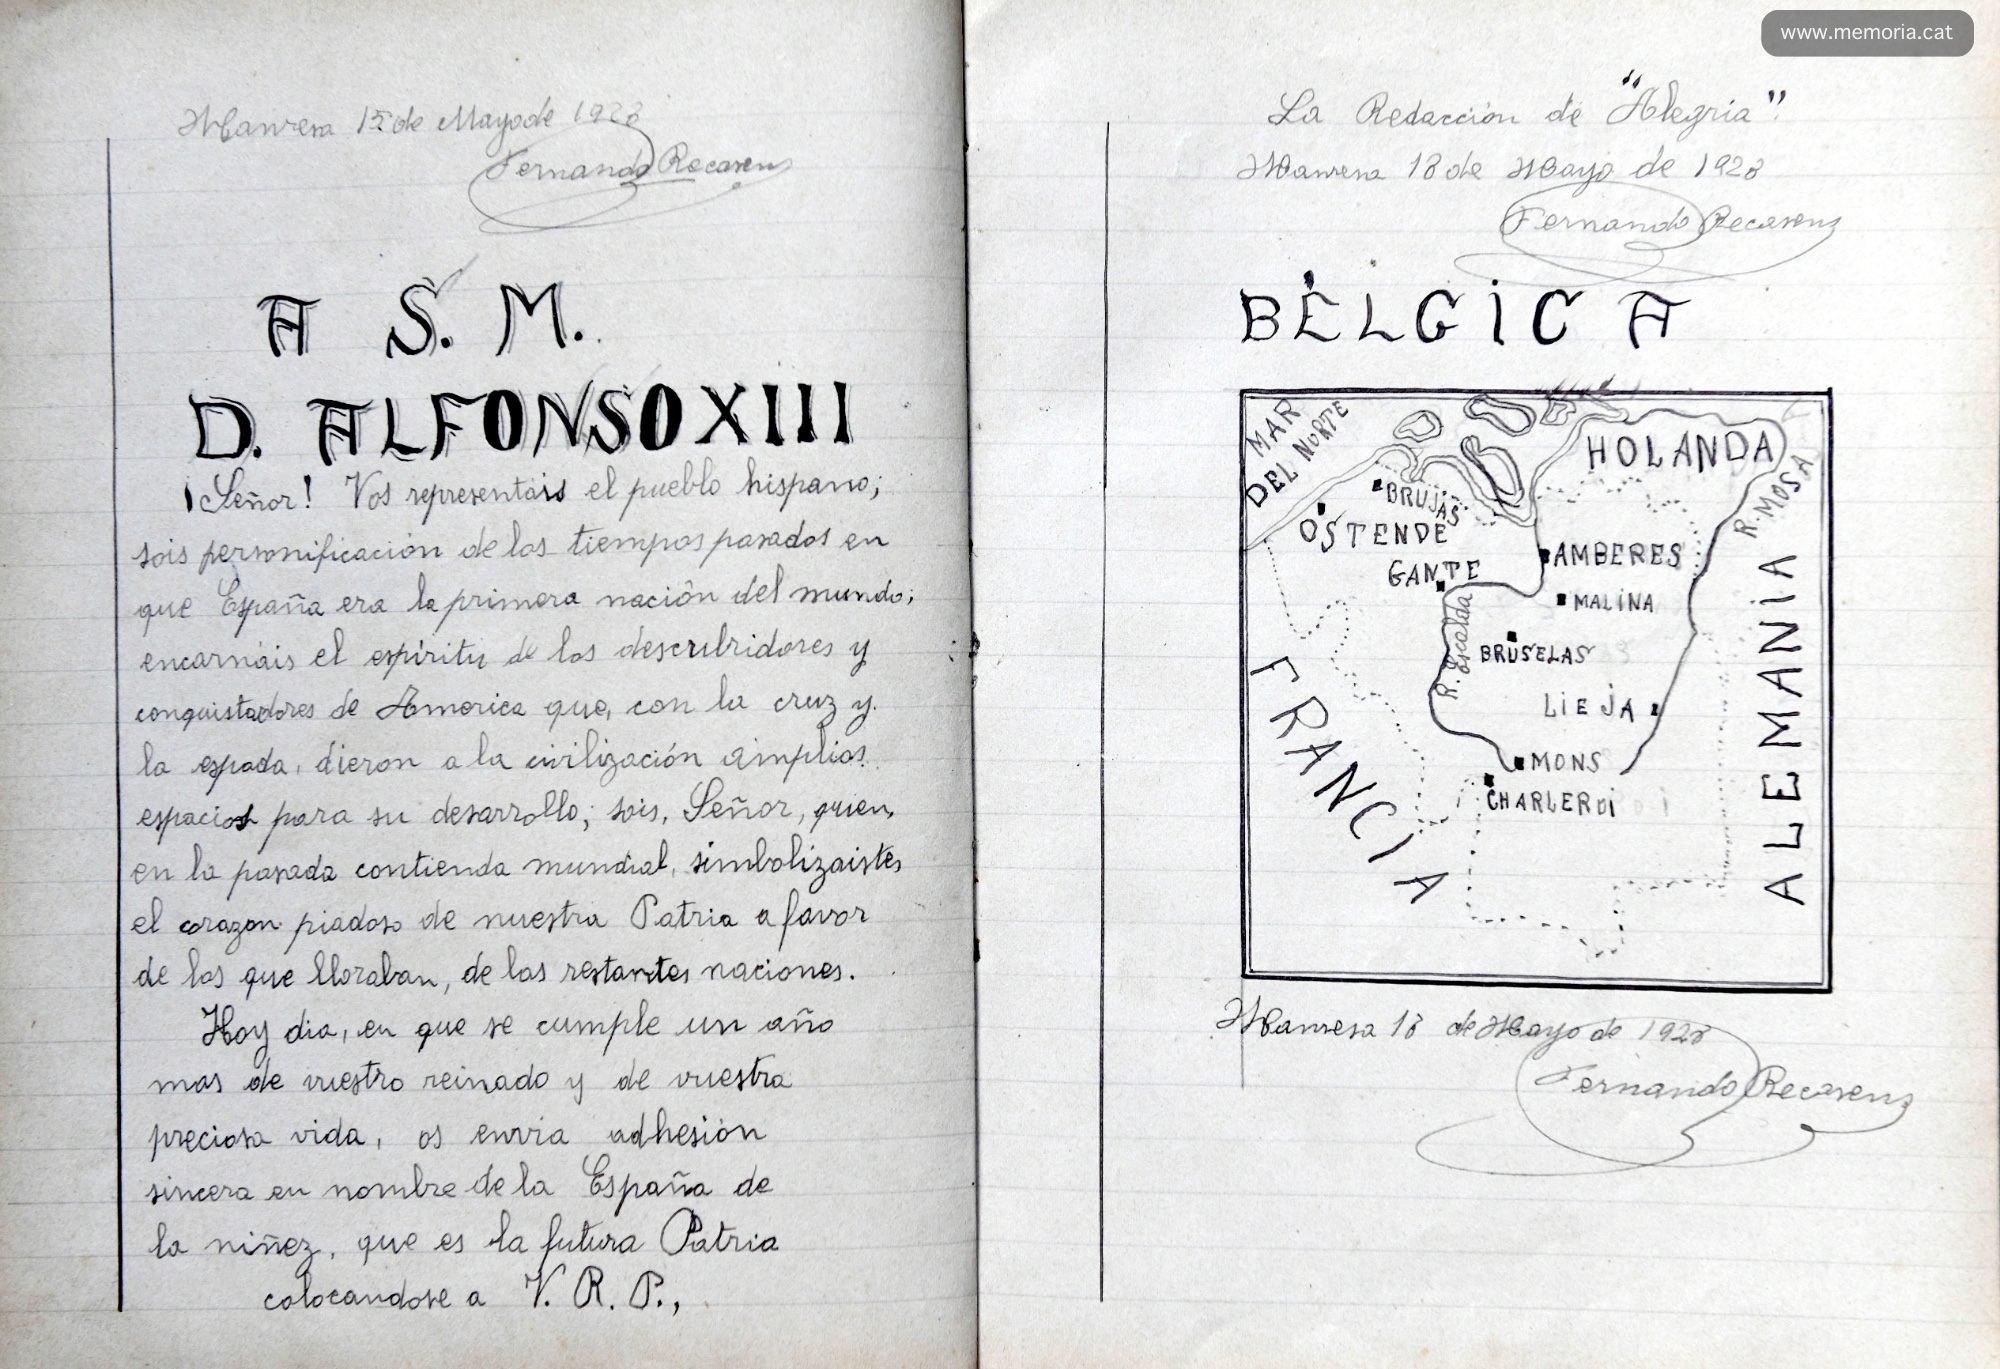 www.memoria.cat
Manresa 15 de Mayo de 1928
Fernando Recasens
A S. M.
D. ALFONSO XIII
¡Señor! Vos representáis el pueblo hispano;
sois personificación de los tiempos pasados en
que España era la primera nación del mundo;
encarnáis el espíritu de los descubridores y
conquistadores de America que, con la cruz y
la espada, dieron a la civilización amplios
espacios para su desarrollo; sois, Señor, quien,
en la pasada contienda mundial, simbolizaistes
el corazon piadoso de nuestra Patria a favor
de los que lloraban, de las restantes naciones.
Hoy dia, en que se cumple un año
mas de vuestro reinado y de vuestra
preciosa vida, os envia adhesión
sincera en nombre de la España de
la niñez, que es la futura Patria
colocandose a V. R. P.,
La Redacción de "Alegria".
Manresa 18 de Mayo de 1928
Fernando Recasens
BÉLGICA
MAR
DEL NORTE
HOLANDA
R. MOSA
BRUJAS
OSTENDE
GANTE
AMBERES
MALINA
R. Escalda
BRUSELAS
LIEJA
MONS
CHARLEROI
FRANCIA
ALEMANIA
Manresa 18 de Mayo de 1928
Fernando Recasens